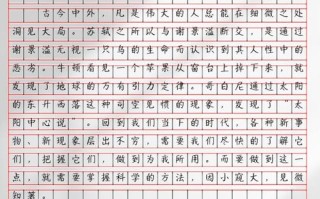 古今中外，凡是伟大的人总能在细微之处
洞见大局。苏轼之所以与谢景温断交，是通过
谢景温无视一只鸟的生命而认识到其人性中的
恶劣。牛顿看见一个苹果从窗台上掉下来，就
发现了地球的万有引力定律。哥白尼通过太阳
的东升西落这种司空见惯的现象，发现了“太
阳中心说”。回到我们当下的时代，各种新事
物、新现象层出不穷，需要我们尽快的了解它
们，把握它们，做到为我所用。而要做到这一
点，就需要掌握科学的方法，因小窥大，见微
知著。